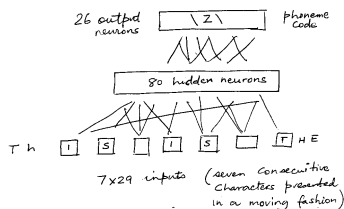 26 output neurons
\Z\
phoneme code
80 hidden neurons
T h I S I S T H E
7x29 inputs
(seven consecuitive
characters presented
in a moving fashion)